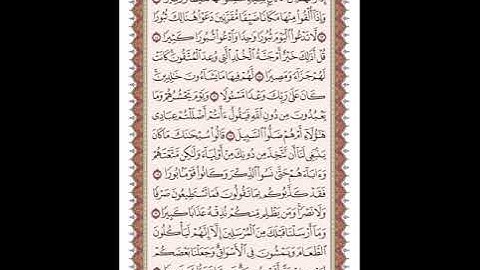 وَإِذَآ أُلْقُوا۟ مِنْهَا مَكَانًا ضَيِّقًا مُّقَرَّنِينَ دَعَوْا۟ هُنَالِكَ ثُبُورًا
١٣ لَّا تَدْعُوا۟ ٱلْيَوْمَ ثُبُورًا وَٰحِدًا وَٱدْعُوا۟ ثُبُورًا كَثِيرًا ١٤
قُلْ أَذَٰلِكَ خَيْرٌ أَمْ جَنَّةُ ٱلْخُلْدِ ٱلَّتِى وُعِدَ ٱلْمُتَّقُونَ كَانَتْ
لَهُمْ جَزَآءً وَمَصِيرًا ١٥ لَّهُمْ فِيهَا مَا يَشَآءُونَ خَٰلِدِينَ
كَانَ عَلَىٰ رَبِّكَ وَعْدًا مَّسْـُٔولًا ١٦ وَيَوْمَ يَحْشُرُهُمْ وَمَا
يَعْبُدُونَ مِن دُونِ ٱللَّهِ فَيَقُولُ ءَأَنتُمْ أَضْلَلْتُمْ عِبَادِى
هَٰٓؤُلَآءِ أَمْ هُمْ ضَلُّوا۟ ٱلسَّبِيلَ ١٧ قَالُوا۟ سُبْحَٰنَكَ مَا كَانَ
يَنۢبَغِى لَنَآ أَن نَّتَّخِذَ مِن دُونِكَ مِنْ أَوْلِيَآءَ وَلَٰكِن مَّتَّعْتَهُمْ
وَءَابَآءَهُمْ حَتَّىٰ نَسُوا۟ ٱلذِّكْرَ وَكَانُوا۟ قَوْمًۢا بُورًا ١٨
فَقَدْ كَذَّبُوكُم بِمَا تَقُولُونَ فَمَا تَسْتَطِيعُونَ صَرْفًا
وَلَا نَصْرًا وَمَن يَظْلِم مِّنكُمْ نُذِقْهُ عَذَابًا كَبِيرًا ١٩
وَمَآ أَرْسَلْنَا قَبْلَكَ مِنَ ٱلْمُرْسَلِينَ إِلَّآ إِنَّهُمْ لَيَأْكُلُونَ
ٱلطَّعَامَ وَيَمْشُونَ فِى ٱلْأَسْوَاقِ وَجَعَلْنَا بَعْضَكُمْ